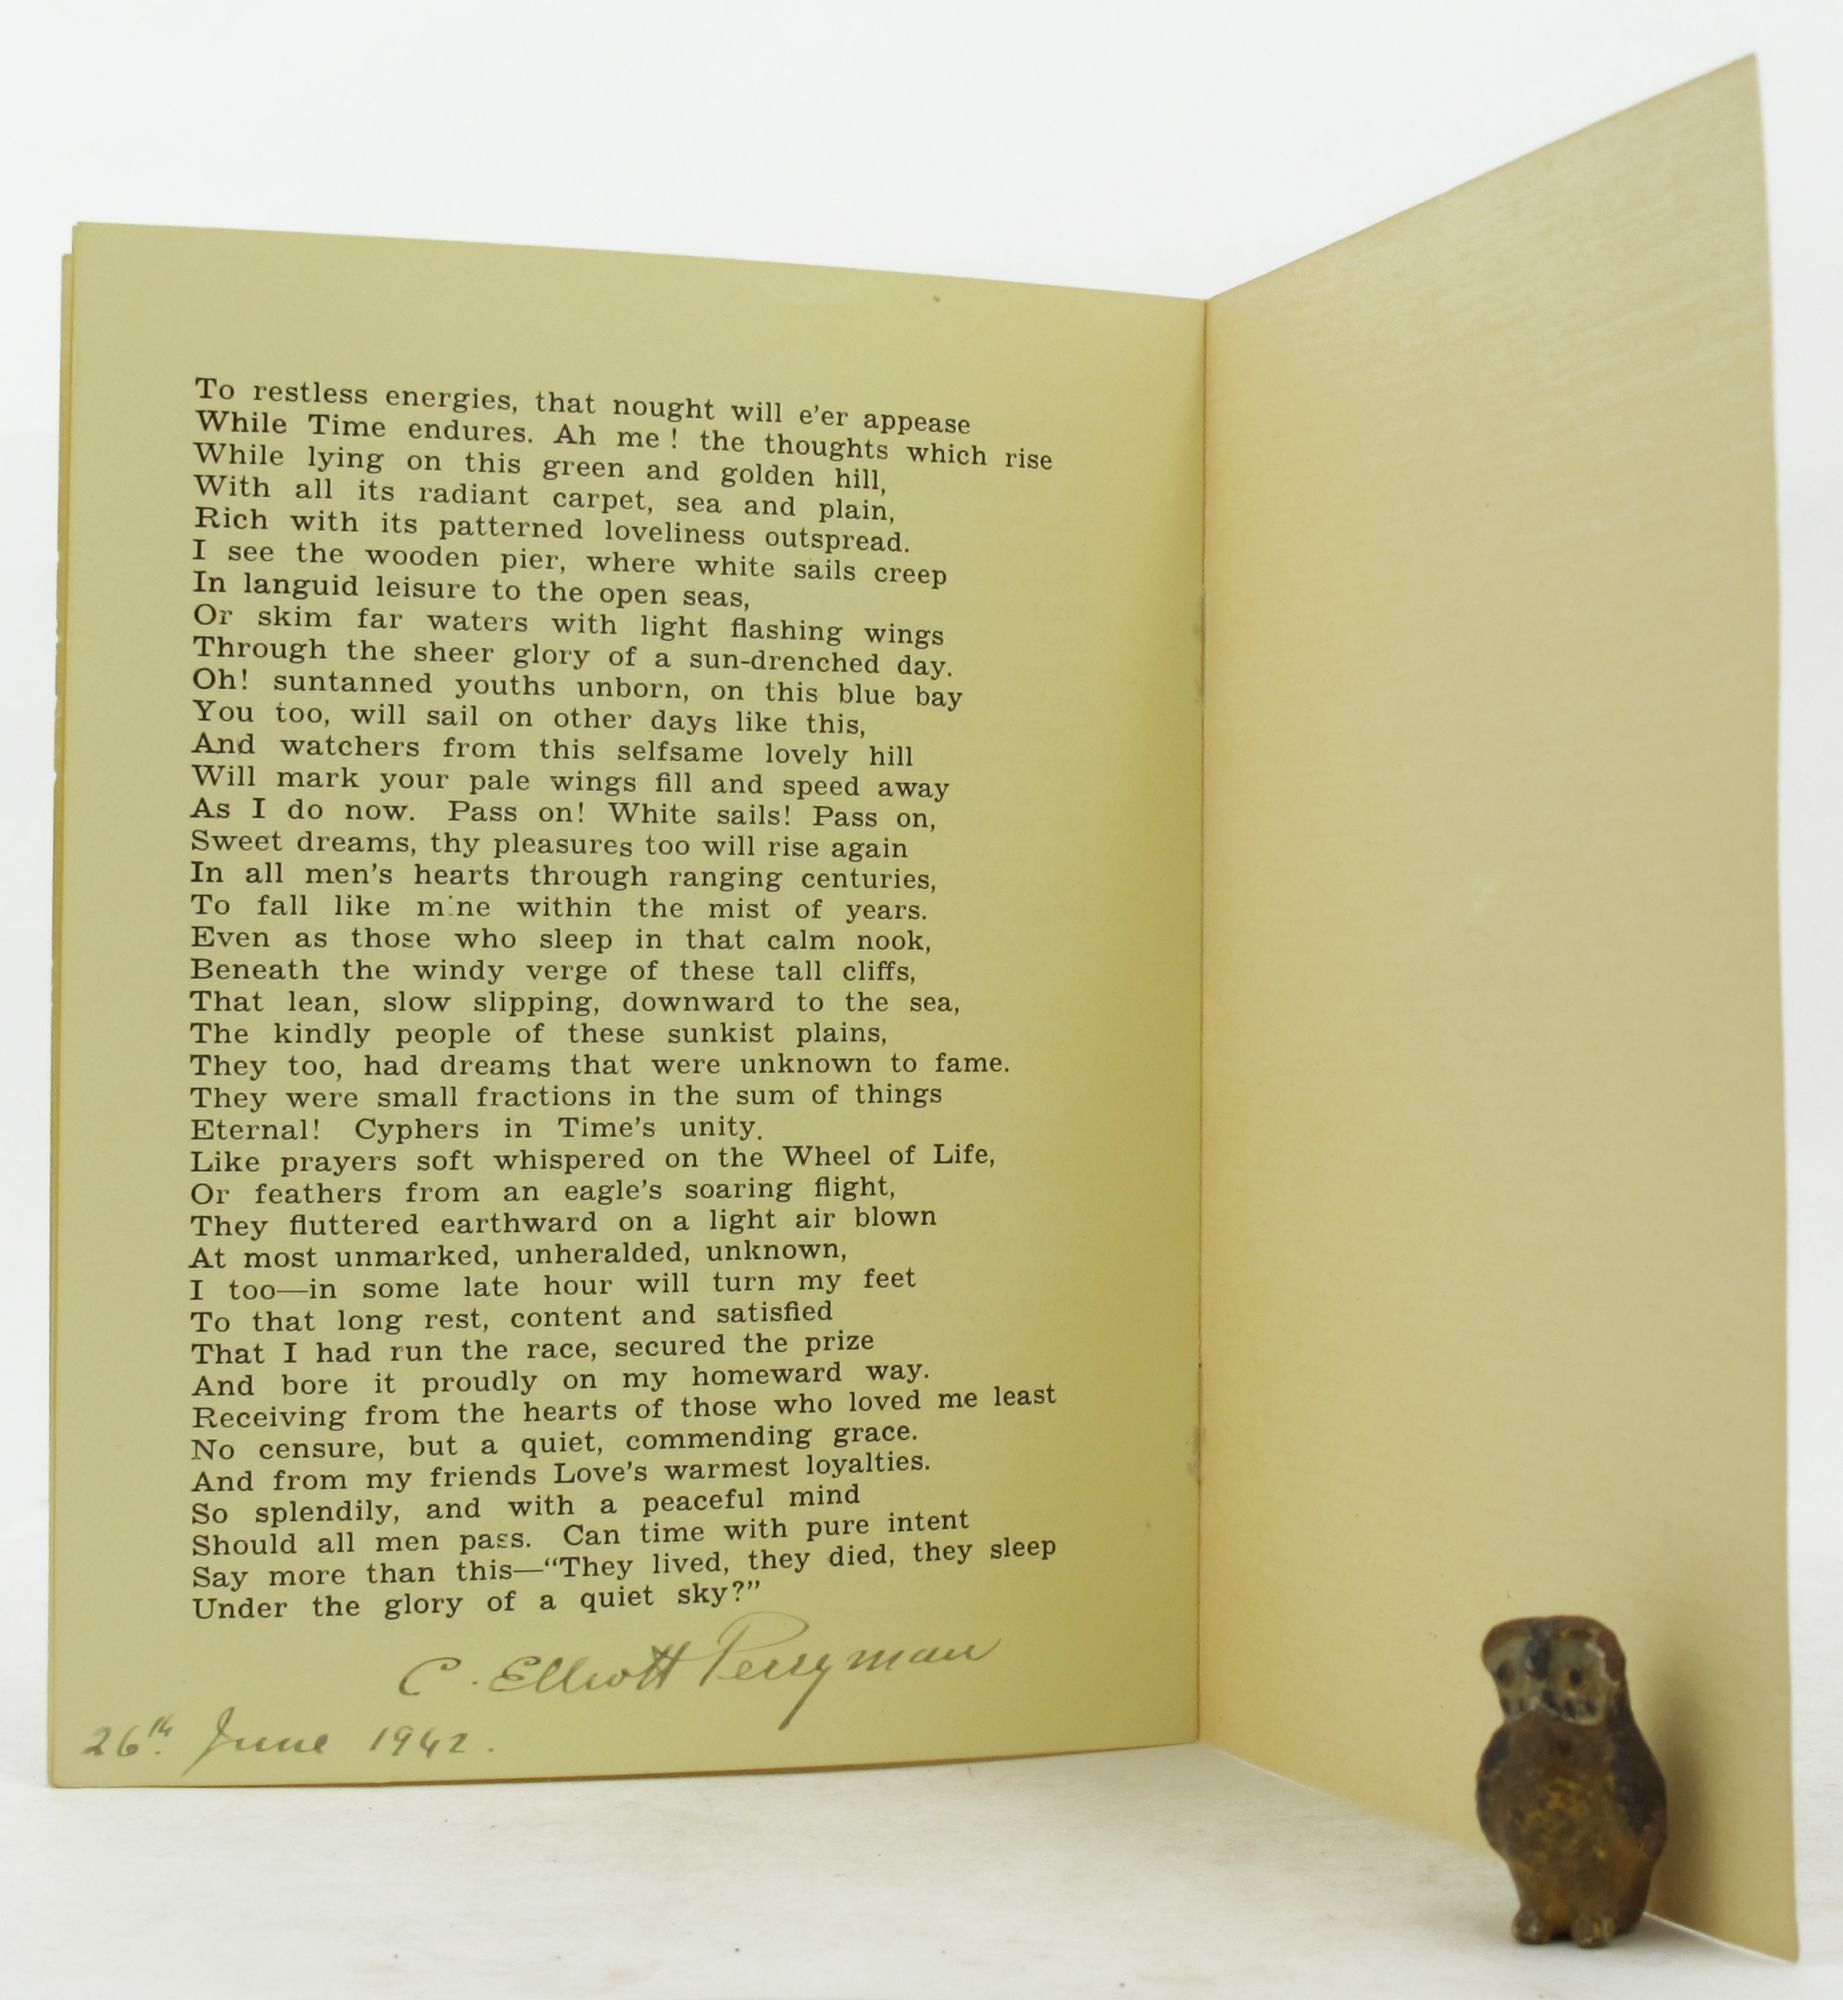 To restless energies, that nought will e'er appease
While Time endures. Ah me! the thoughts which rise
While lying on this green and golden hill,
With all its radiant carpet, sea and plain,
Rich with its patterned loveliness outspread.
I see the wooden pier, where white sails creep
In languid leisure to the open seas,
Or skim far waters with light flashing wings
Through the sheer glory of a sun-drenched day.
Oh! suntanned youths unborn, on this blue bay
You too, will sail on other days like this,
And watchers from this selfsame lovely hill
Will mark your pale wings fill and speed away
As I do now. Pass on! White sails! Pass on,
Sweet dreams, thy pleasures too will rise again
In all men's hearts through ranging centuries,
To fall like mine within the mist of years.
Even as those who sleep in that calm nook,
Beneath the windy verge of these tall cliffs,
That lean, slow slipping, downward to the sea,
The kindly people of these sunkist plains,
They too, had dreams that were unknown to fame.
They were small fractions in the sum of things
Eternal! Cyphers in Time's unity.
Like prayers soft whispered on the Wheel of Life,
Or feathers from an eagle's soaring flight,
They fluttered earthward on a light air blown
At most unmarked, unheralded, unknown,
I too—in some late hour will turn my feet
To that long rest, content and satisfied
That I had run the race, secured the prize
And bore it proudly on my homeward way.
Receiving from the hearts of those who loved me least
No censure, but a quiet, commending grace.
And from my friends Love's warmest loyalties.
So splendily, and with a peaceful mind
Should all men pass. Can time with pure intent
Say more than this—“They lived, they died, they sleep
Under the glory of a quiet sky?”
C. Elliott Perryman
26th. June 1942.